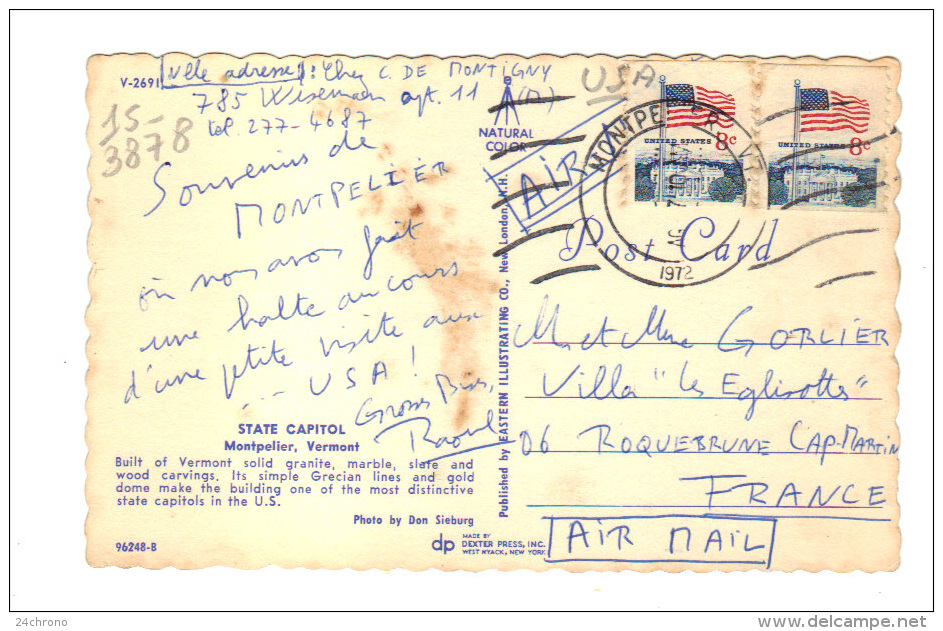 V-2691
[Nlle adresse]: chez C. DE MONTIGNY
785 Wiseman apt. 11
tél. 277-4687
15-
3878
Souvenirs de
MONTPELIER
où nous avons fait
une halte au cours
d'une petite visite aux
... USA !
Grosses Bises,
Raoul
STATE CAPITOL
Montpelier, Vermont
Built of Vermont solid granite, marble, slate and
wood carvings. Its simple Grecian lines and gold
dome make the building one of the most distinctive
state capitols in the U.S.
Photo by Don Sieburg
96248-B
dp MADE BY
DEXTER PRESS, INC.
WEST NYACK, NEW YORK
NATURAL
COLOR
Published by EASTERN ILLUSTRATING CO., New London, N.H.
USA
AIR
MONTPELIER VT.
AUG 7
1972
UNITED STATES 8c
UNITED STATES 8c
Post Card
M et Mme GORLIER
Villa "les Eglisottes"
06 ROQUEBRUNE CAP-MARTIN
FRANCE
AIR MAIL
24chrono
delcampe.net